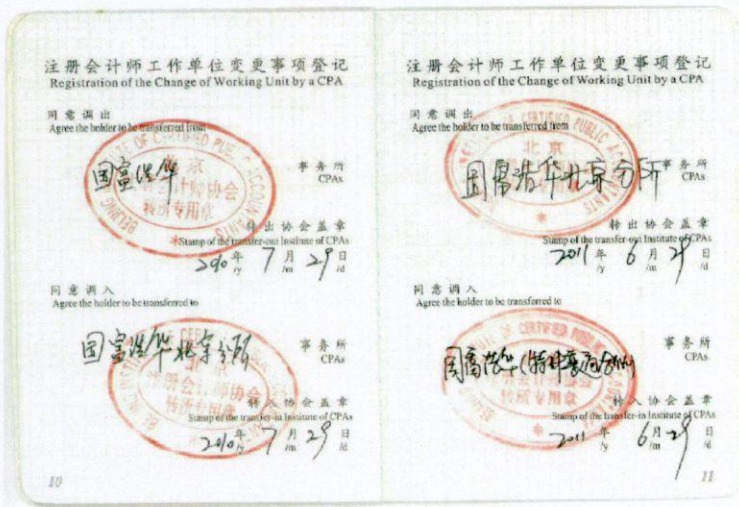 注册会计师工作单位变更事项登记
Registration of the Change of Working Unit by a CPA
同意调出
Agree the holder to be transferred from
国富浩华
事务所
CPAs
转出协会盖章
Stamp of the transfer-out Institute of CPAs
2010年 7月 29日
/y /m /d
同意调入
Agree the holder to be transferred to
国富浩华北京分所
事务所
CPAs
转入协会盖章
Stamp of the transfer-in Institute of CPAs
2010年 7月 29日
/y /m /d
10
注册会计师工作单位变更事项登记
Registration of the Change of Working Unit by a CPA
同意调出
Agree the holder to be transferred from
国富浩华北京分所
事务所
CPAs
转出协会盖章
Stamp of the transfer-out Institute of CPAs
2011年 6月 29日
/y /m /d
同意调入
Agree the holder to be transferred to
国富浩华(特殊普通合伙)
事务所
CPAs
转入协会盖章
Stamp of the transfer-in Institute of CPAs
2011年 6月 29日
/y /m /d
11